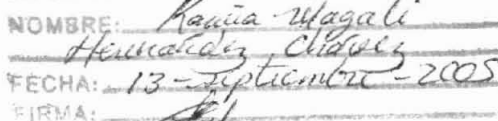 NOMBRE: Karina Magali
Hernández Chávez
FECHA: 13-Septiembre-2005
FIRMA: